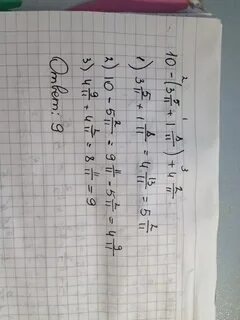 2 1 3
10 - (3 5/11 + 1 8/11) + 4 2/11
1) 3 5/11 + 1 8/11 = 4 13/11 = 5 2/11
2) 10 - 5 2/11 = 9 11/11 - 5 2/11 = 4 9/11
3) 4 9/11 + 4 2/11 = 8 11/11 = 9
Ответ: 9